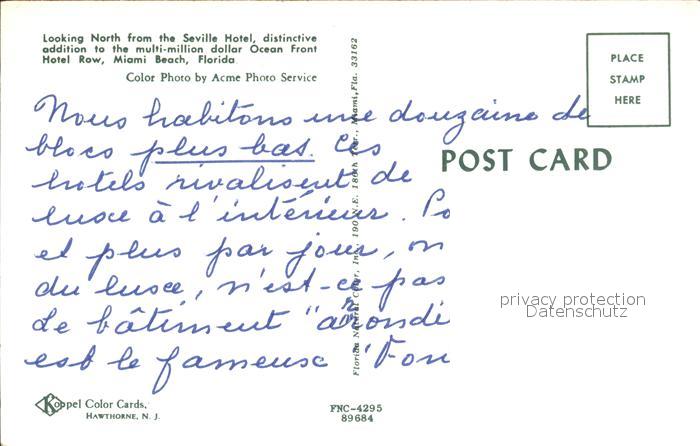 Looking North from the Seville Hotel, distinctive
addition to the multi-million dollar Ocean Front
Hotel Row, Miami Beach, Florida
Color Photo by Acme Photo Service
PLACE
STAMP
HERE
POST CARD
Nous habitons une douzaine de
blocs plus bas. Ces
hotels rivalisent de
luxe à l'intérieur.
et plus par jour, on
du luxe, n'est-ce pas
Le bâtiment
est le fameuse "Fon
Florida Natural Color, Inc., 190 N.E. 186th Terr., Miami, Fla. 33162
privacy protection
Datenschutz
Koppel Color Cards,
HAWTHORNE, N. J.
FNC-4295
89684